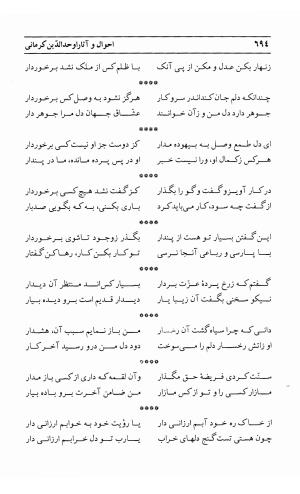 ۶۹۴ احوال و آثار اوحدالدّین کرمانی
زنهار بکن عدل و مکن از پی آنک با ظلم کس از ملک نشد برخوردار
****
چندانکه دلم جان کند اندر سر و کار هرگز نشود به وصل کس برخوردار
جوهر دارد دل من و زآن خوانند عشّاق جهان دل مرا جوهر دار
****
ای دل طمع وصل به بیهوده مدار کز دوست جز او نیست کسی برخوردار
هر کس ز کمال او، ورا نیست خبر او در پس پرده مانده، ما در پندار
****
در کار آویز و گفت و گو را بگذار کز گفت نشد هیچ کسی برخوردار
از گفت چه سود، کار می‌باید کرد باری بکنی، به که بگویی صدبار
****
این گفتن بسیار تو هست از پندار بگذر ز وجود تا شوی برخوردار
با پارسی و رباعی آنجا نرسی تو کار بکن کار، رها کن گفتار
****
گفتم که ز رخ پردهٔ عزّت بردار بسیار کس‌اند منتظر آن دیدار
نیکو سخنی بگفت آن زیبا یار دیدار قدیم است برو دیده بیار
****
دانی که چرا سیاه گشت آن رخسار من باز نمایم سبب آن، هشدار
او زاتش رخسار دلم را می‌سوخت دود دل من درو رسید آخر کار
****
سنّت کردی فریضهٔ حق مگذار وآن لقمه که داری از کسی باز مدار
مازار کسی را و تو از کس مازار من ضامن آخرت برو باده بیار
****
از خاک ره خود آبم ارزانی دار یا رؤیت خود به خوابم ارزانی دار
چون هستی تست گنج دلهای خراب یا رب تو دل خرابم ارزانی دار